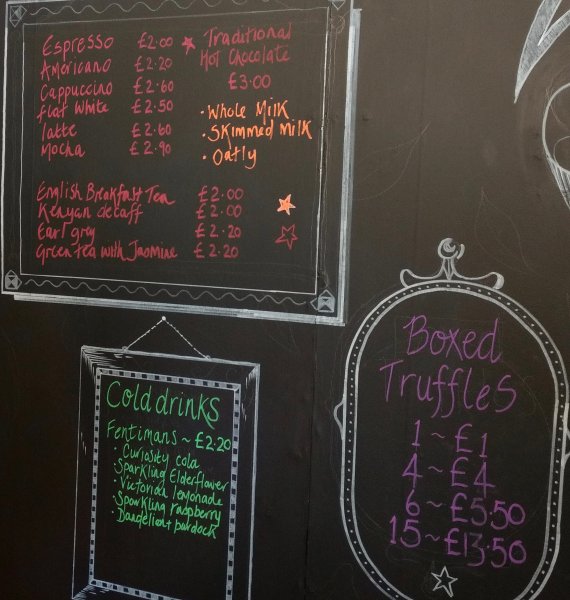 Espresso £2.00
Americano £2.20
Cappuccino £2.60
flat White £2.50
latte £2.60
Mocha £2.90
English Breakfast Tea £2.00
Kenyan decaff £2.00
Earl grey £2.20
Green tea with Jasmine £2.20
Traditional
Hot Chocolate
£3.00
• Whole Milk
• Skimmed Milk
• Oatly
Cold drinks
Fentimans ~ £2.20
• Curiosity cola
Sparkling Elderflower
• Victorian lemonade
• Sparkling raspberry
• Dandelion + burdock
Boxed
Truffles
1 ~ £1
4 ~ £4
6 ~ £5.50
15 ~ £13.50